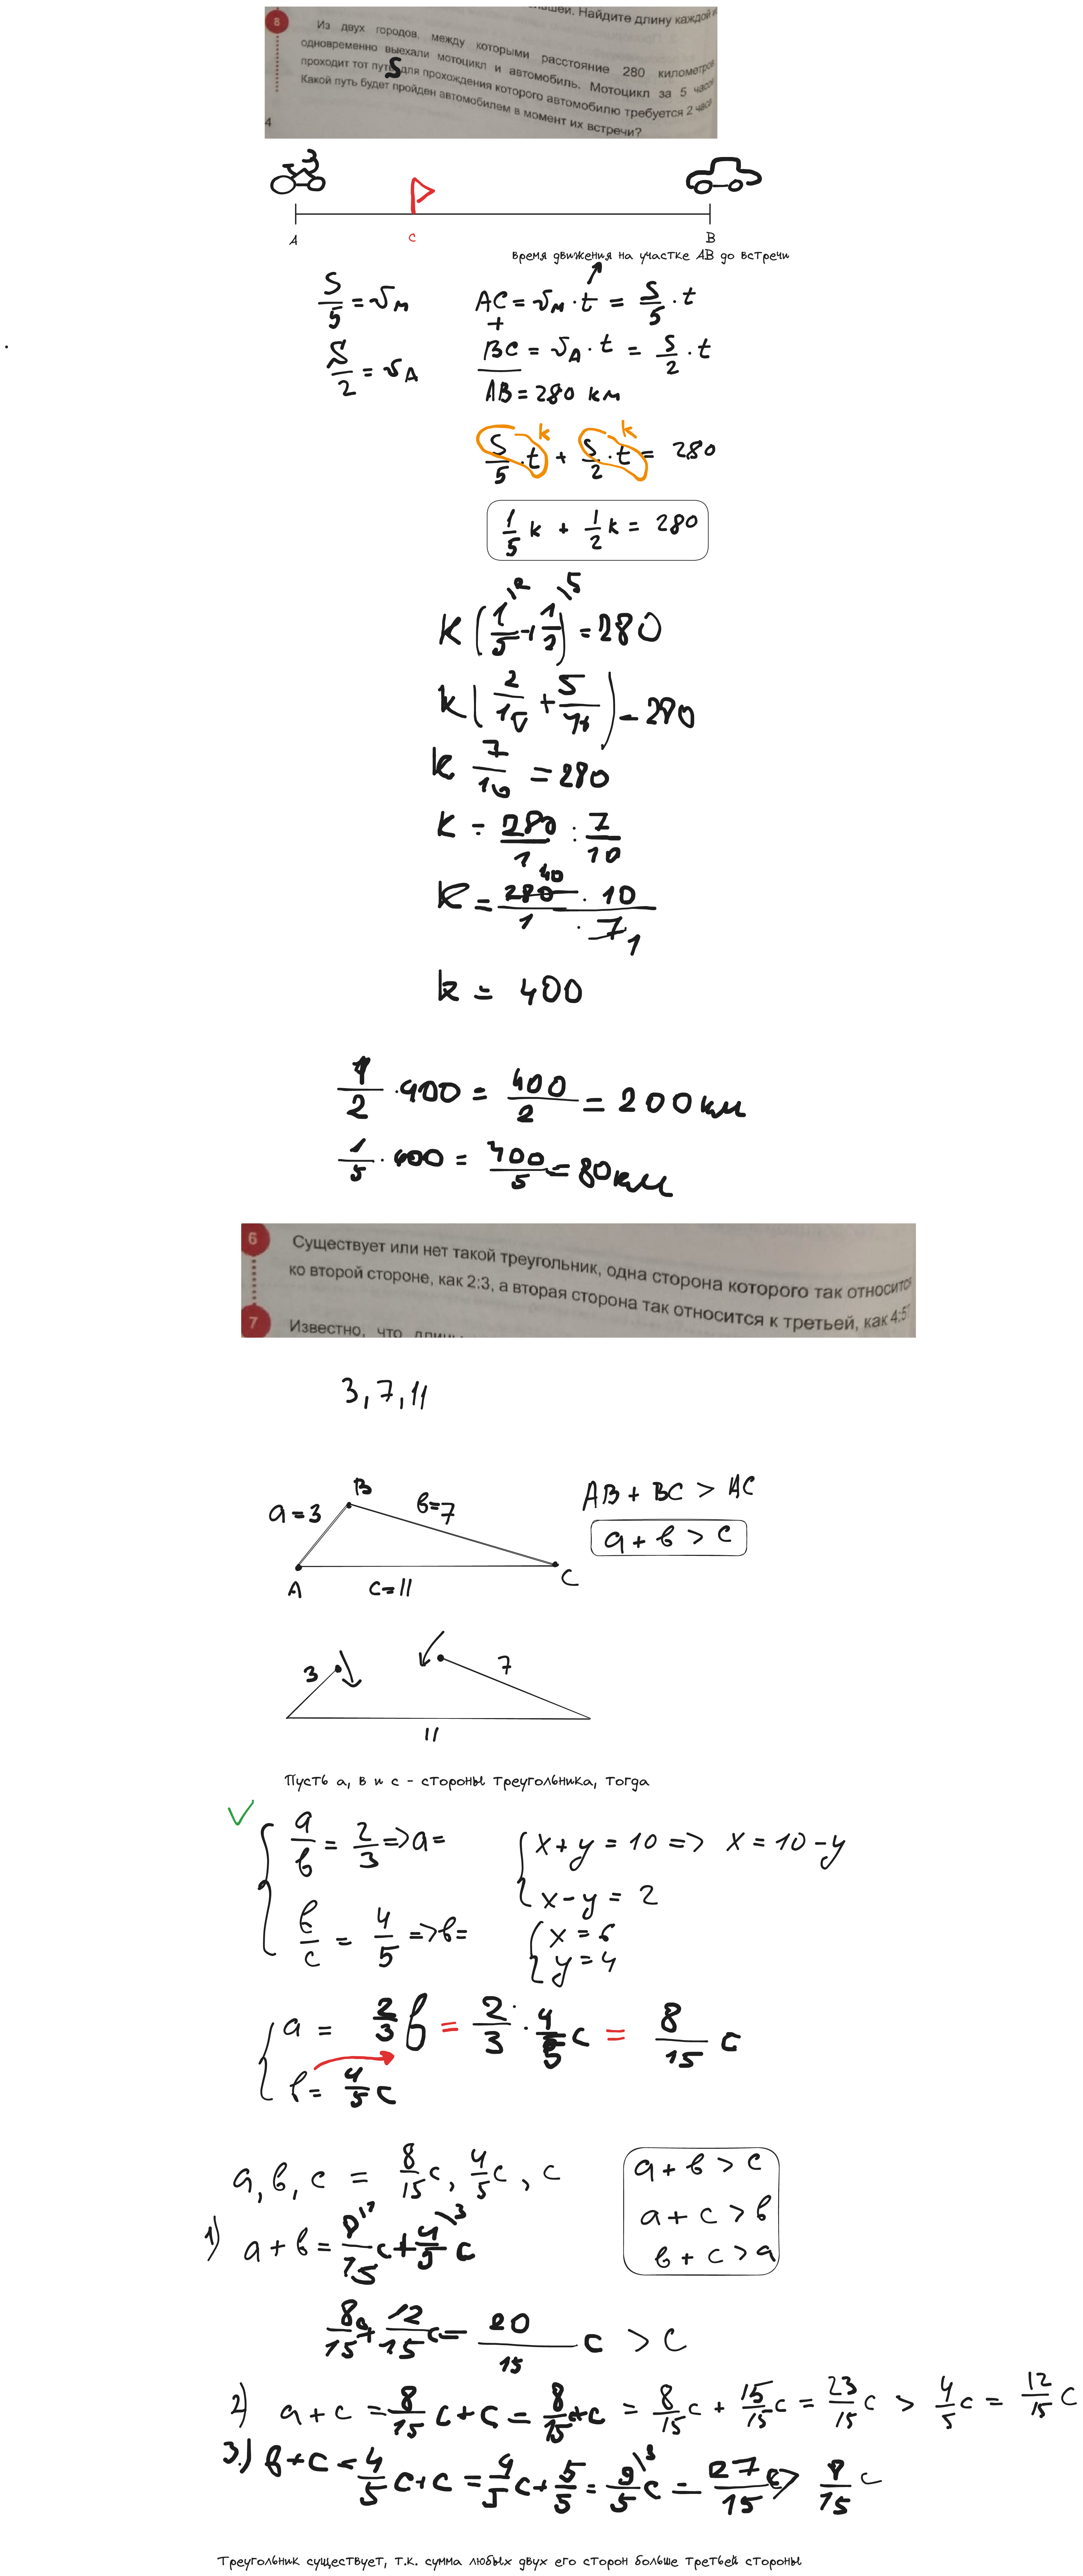 8
Найдите длину каждой
Из двух городов, между которыми расстояние 280 километров
одновременно выехали мотоцикл и автомобиль. Мотоцикл за 5 часов
проходит тот путь для прохождения которого автомобилю требуется 2 часа
S
Какой путь будет пройден автомобилем в момент их встречи?
4
A C B
время движения на участке AB до встречи
S/5 = υм AC = υм · t = S/5 · t
+
S/2 = υА BC = υА · t = S/2 · t
AB = 280 км
k k
S/5 · t + S/2 · t = 280
1/5 k + 1/2 k = 280
\2 \5
K (1/5 + 1/2) = 280
k (2/10 + 5/10) = 280
k 7/10 = 280
K = 280/1 : 7/10
40
K = 280 · 10 / 1 · 7 1
k = 400
1/2 · 400 = 400/2 = 200 км
1/5 · 400 = 400/5 = 80 км
6
Существует или нет такой треугольник, одна сторона которого так относится
ко второй стороне, как 2:3, а вторая сторона так относится к третьей, как 4:5?
7
Известно, что
3, 7, 11
B
a = 3 в=7 AB + BC > AC
a + в > c
A c = 11 C
3 7
11
Пусть a, в и c - стороны треугольника, тогда
a/в = 2/3 => a = x + y = 10 => x = 10 - y
x - y = 2
в/c = 4/5 => в = x = 6
y = 4
a = 2/3 в = 2/3 · 4/5 c = 8/15 c
в = 4/5 c
a, в, c = 8/15 c, 4/5 c, c
a + в > c
a + c > в
в + c > a
1) a + в = 8/15 c + 4/5 \3 c
8/15 c + 12/15 c = 20/15 c > c
2) a + c = 8/15 c + c = 8/15 + c = 8/15 c + 15/15 c = 23/15 c > 4/5 c = 12/15 c
3.) в + c = 4/5 c + c = 4/5 c + 5/5 = 9/5 \3 c = 27/15 c > 8/15 c
Треугольник существует, т.к. сумма любых двух его сторон больше третьей стороны